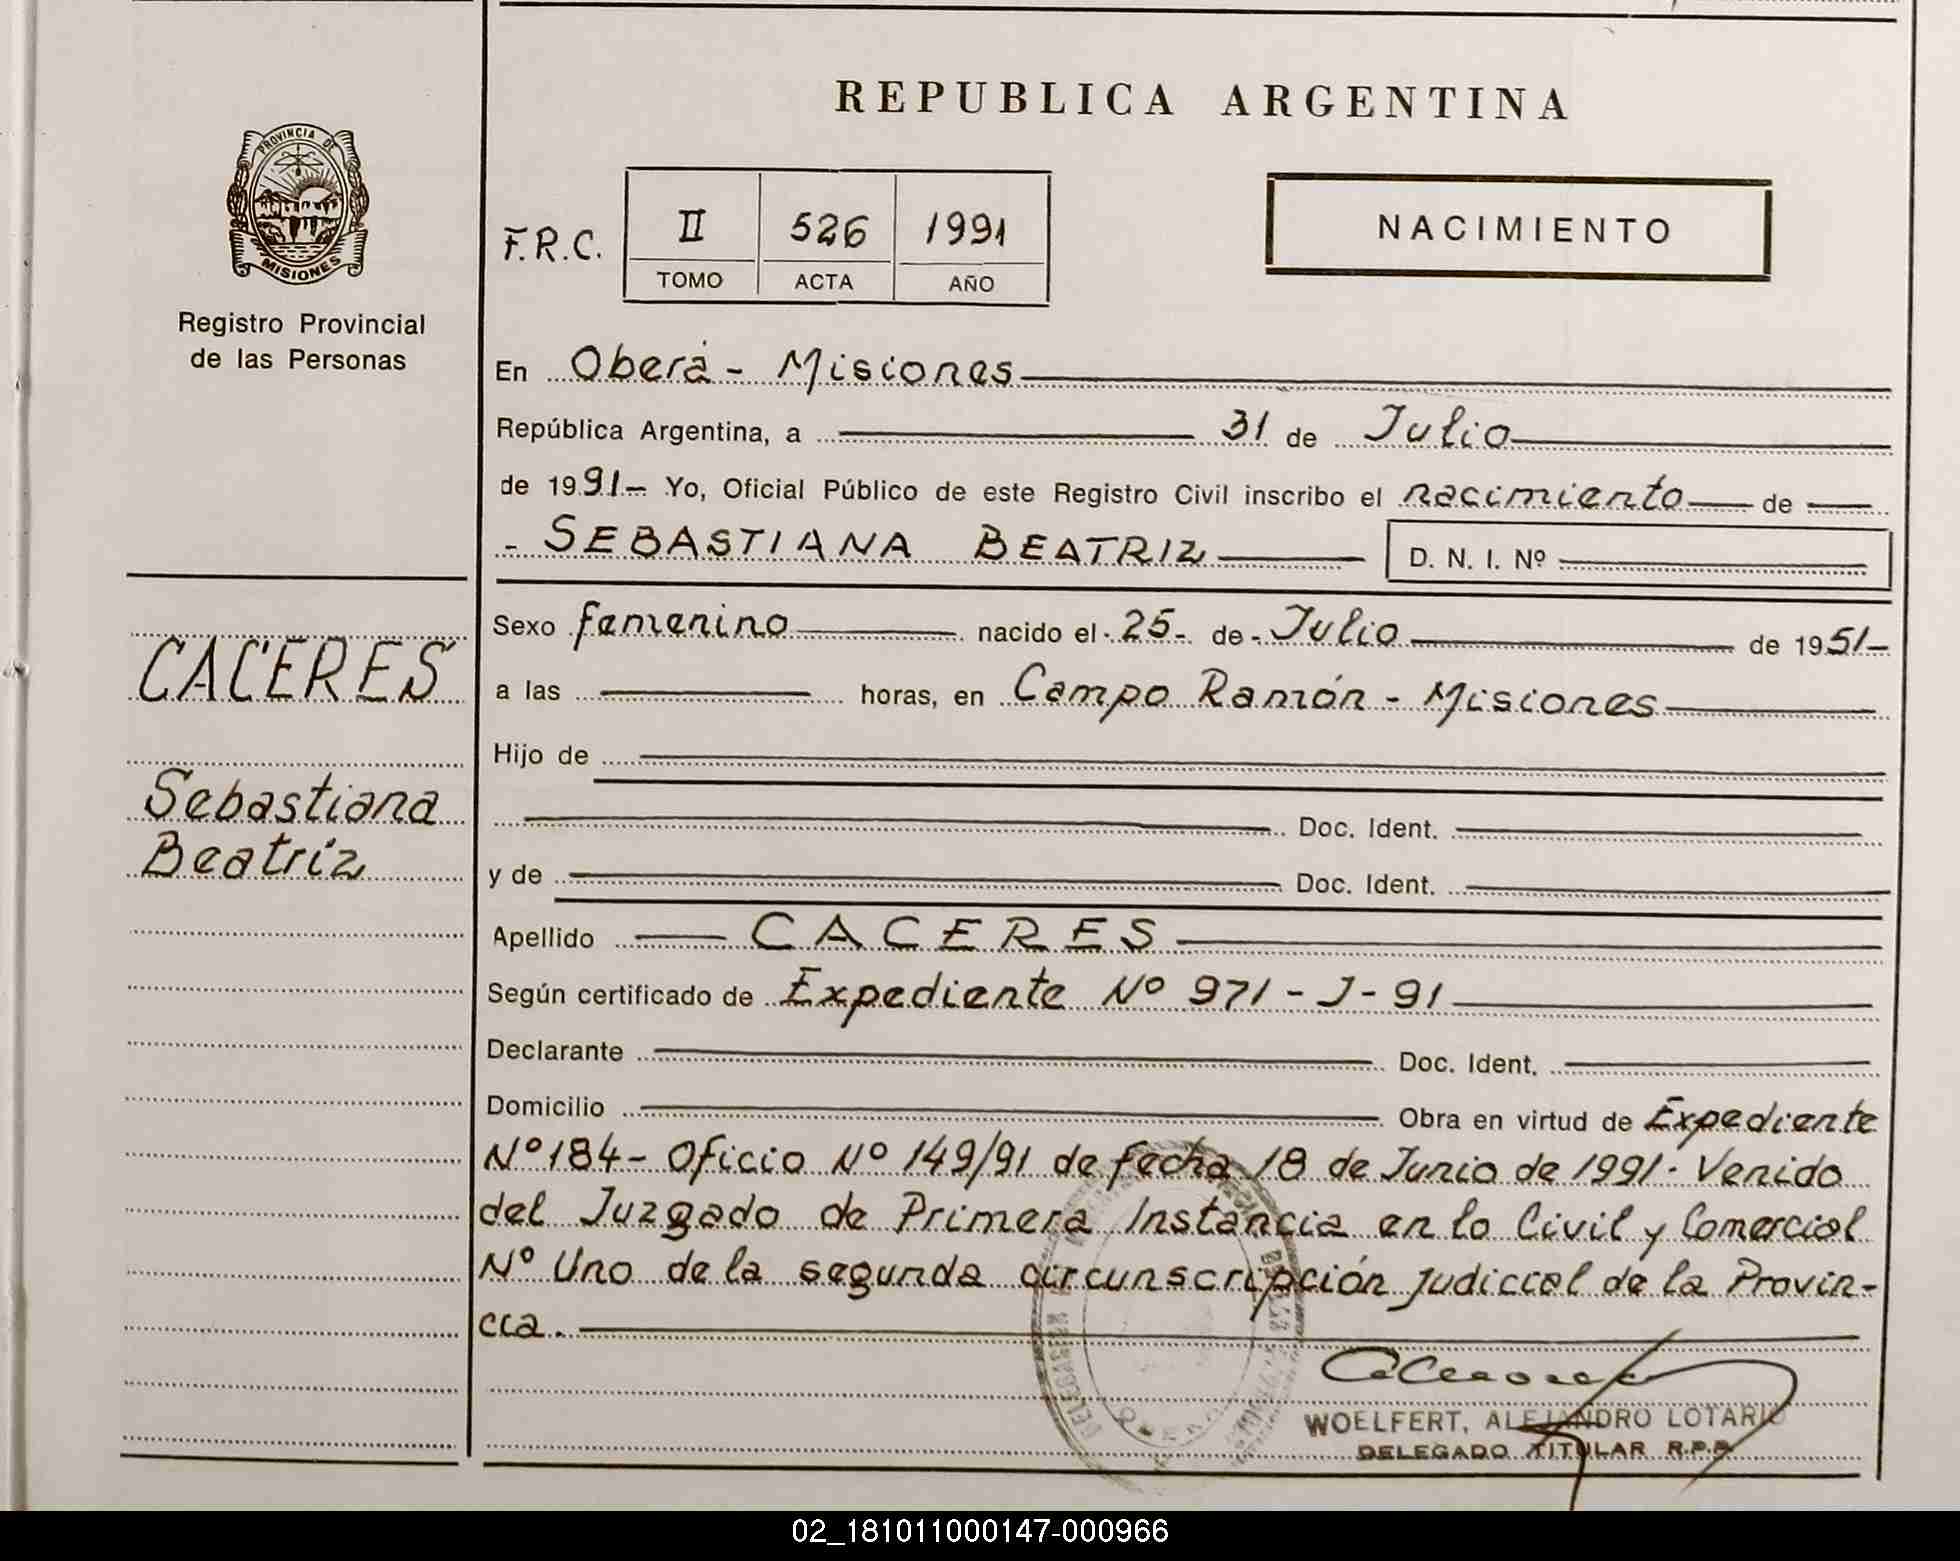 REPUBLICA ARGENTINA
PROVINCIA DE
MISIONES
Registro Provincial
de las Personas
F.R.C.
II 526 1991
TOMO ACTA AÑO
NACIMIENTO
En Oberá - Misiones
República Argentina, a 31 de Julio
de 1991- Yo, Oficial Público de este Registro Civil inscribo el nacimiento de
- SEBASTIANA BEATRIZ D. N. I. Nº
CACERES
Sebastiana
Beatriz
Sexo femenino nacido el 25- de Julio de 1951-
a las horas, en Campo Ramón - Misiones
Hijo de
Doc. Ident.
y de Doc. Ident.
Apellido CACERES
Según certificado de Expediente Nº 971-J-91
Declarante Doc. Ident.
Domicilio Obra en virtud de Expediente
Nº 184- Oficio Nº 149/91 de fecha 18 de Junio de 1991- Venido
del Juzgado de Primera Instancia en lo Civil y Comercial
Nº Uno de la segunda circunscripción judicial de la Provin-
cia.
WOELFERT, ALEJANDRO LOTARIO
DELEGADO TITULAR R.P.P.
02_181011000147-000966